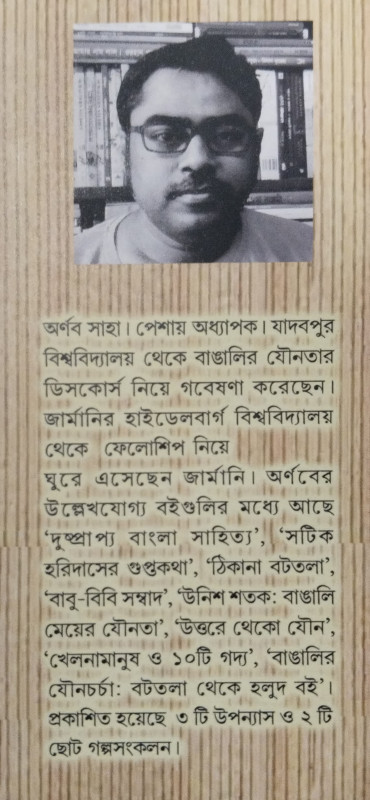 অর্ণব সাহা। পেশায় অধ্যাপক। যাদবপুর
বিশ্ববিদ্যালয় থেকে বাঙালির যৌনতার
ডিসকোর্স নিয়ে গবেষণা করেছেন।
জার্মানির হাইডেলবার্গ বিশ্ববিদ্যালয়
থেকে ফেলোশিপ নিয়ে
ঘুরে এসেছেন জার্মানি। অর্ণবের
উল্লেখযোগ্য বইগুলির মধ্যে আছে
‘দুষ্প্রাপ্য বাংলা সাহিত্য’, ‘সটিক
হরিদাসের গুপ্তকথা’, ‘ঠিকানা বটতলা’,
‘বাবু-বিবি সম্বাদ’, ‘উনিশ শতক: বাঙালি
মেয়ের যৌনতা’, ‘উত্তরে থেকো যৌন’,
‘খেলনামানুষ ও ১০টি গদ্য’, ‘বাঙালির
যৌনচর্চা: বটতলা থেকে হলুদ বই’।
প্রকাশিত হয়েছে ৩ টি উপন্যাস ও ২ টি
ছোট গল্পসংকলন।